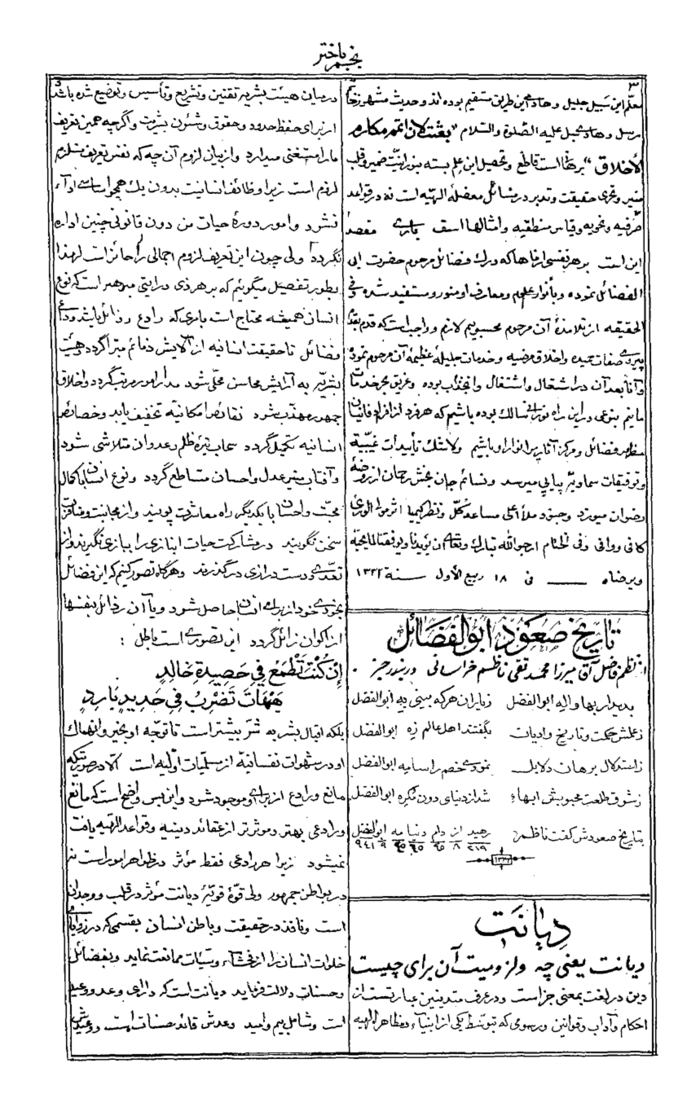 نجم باختر
۳
معلّم این سبیل جلیل و هادی این طریق مستقیم بوده اند و حدیث مشهور
مرسل و هادی سبل علیه الصّلوة والسّلام "بعثت لاتمّم مکارم
الاخلاق" برهانست قاطع و تحصیل این علم بسته بنورانیّت ضمیر و قلب
منیر و تحرّی حقیقت و تدبر در مسائل معضلهٔ الهیّه است نه در قواعد
صرفیه و نحویه و قیاس منطقیه و امثالها است باری مقصد
این است برهر نفسی از ماها که درک فضائل مرحوم حضرت ابی
الفضائل نموده و بانوار علم و معارف او منوّر و مستفید شده و فی
الحقیقه از تلامذهٔ آن مرحوم محسوبیم لازم و واجب است که
پیروی صفات حمیده و اخلاق مرضیه و خدمات جلیلهٔ عظیمهٔ آن مرحوم نموده
و آناً بعد آن در اشتعال و اشتغال و انجذاب بوده و غریق بحر خدمات
مانیم بنوعی در این راه نورانی سالک بوده باشیم که هر فرد از افراد فانیان
مظهر فضائل و مرکز آثار پر انوار او باشیم ولاشک تأییدات غیبیّة
و توفیقات سماویّه پیاپی میرسد و نسائم جان بخش رحمان از روضهٔ
رضوان میوزد و جنود ملأ اعلی مساعد کلّ و نظر کیمیا اثر مولی الوری
کافی و وافی و فی الختام ارجو الله تبارک و تعالی ان یؤیدنا و یوفقنا لما یحبّه
و یرضاه ــــ فی ۱۸ ربیع الأول سنة ۱۳۳۲
تاریخ صعود ابوالفضائل
از نظم فاضل آقا میرزا محمد تقی ناظم خراسانی
پدیدار بهاء و اله ابوالفضل زایران هر که
ز علمش حکمت و تاریخ و ادیات بگفتند اهل عالم زه ابوالفضل
ز استدلال برهان دلایل نمودی خصم را ابوالفضل
ز شوق طلعت محبوبش ابهاء شد از دنیای دون ابوالفضل
بتاریخ صعودش گفت ناظم رهید از دام دنیا مه ابوالفضل
۱۳۳۲
دیانت
دیانت یعنی چه و لزومیت آن برای چیست
دین در لغت بمعنی جزا است و در عرف متدینین عبارتست از
احکام و آداب و قوانین و رسومی که بتوسط یکی از انبیاء و مظاهر الهیه
درمیان هیئت بشریه تقنین و تشریع و تأسیس و توضیع شده باشد
از برای حفظ حدود و حقوق و شئون بشریت و اگرچه همین تعریف
ما را مستغنی میدارد و از بیان لزوم آن چه که نفس تعریف مستلزم
لزوم است زیرا وظائف انسانیت بدون یک همچو اساسی اداء
نشود و امور دورهٔ حیات من دون قانونی چنین اداره
نگردد ولی چون این تعریف لزوم اجمالی را حائز است لهذا
بطور تفصیل میگوئیم که بر هر ذی درایتی مبرهن است که نوع
انسان همیشه محتاج است باری که رادع رذائل باشد و داعی
فضائل تا حقیقت انسانیه از آلایش ذمائم مبرّا گردد و هیئت
بشریّه به آرایش محاسن محلّی شود مدار امور مرتب گردد و اخلاق
جمهور مهذّب شود نقائص امکانیه تخفیف یابد و خصائص
انسانیه تکمیل گردد سحاب تیره ظلم و عدوان متلاشی شود
و آفتاب منیر عدل و احسان ساطع گردد و نوع انسان با کمال
محبّت و احسان با یکدیگر راه معاشرت پویند و از مجانبت و منافرت
سخن نگویند در مشارکت حیات انبازی را ببازی نگیرند و از
تعدّی و دست درازی درگذرند و هرگاه تصور کنیم که این فضائل
بخودی خود از برای انسان حاصل شود و یا آن رذائل بنفسها
از اکوان زائل گردد این تصوری است باطل :
إن کنت تطمع فی حصیدة خالد
هیهات تضرب فی حدید بارد
بلکه اقبال بشر به شرّ بیشتر است تا توجه او بخیر و انهماک
او در شهوات نفسانیه از بدیهیات اوّلیه است الّا در صورتیکه
مانع و رادع از برای او موجود شود و این بس واضح است که مانع
و رادعی بهتر و مؤثرتر از عقائد دینیه و قواعد الهیه یافت
نمیشود زیرا هر رادعی فقط مؤثر در ظواهر امور است نه
در بواطن جمهور ولی قوّهٔ قویّهٔ دیانت مؤثر در قلب و وجدان
است و نافذ در حقیقت و باطن انسان بقسمی که در زوایای
خلوات انسان را از فحشاء و سیّئات ممانعت نماید و بفضائل
و حسنات دلالت فرماید دیانت است که دارای وعد و وعید
است و شامل بیم و امید وعدش قائد حسنات است و وعیدش